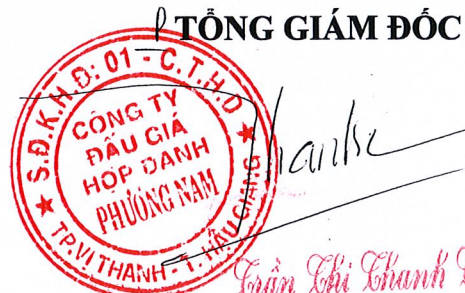 P TỔNG GIÁM ĐỐC
S.Đ.K.H.Đ: 01 - C.T.H.D
CÔNG TY
ĐẤU GIÁ
HỢP DANH
PHƯƠNG NAM
TP.VỊ THANH - T. HẬU GIANG
Trần Thị Thanh